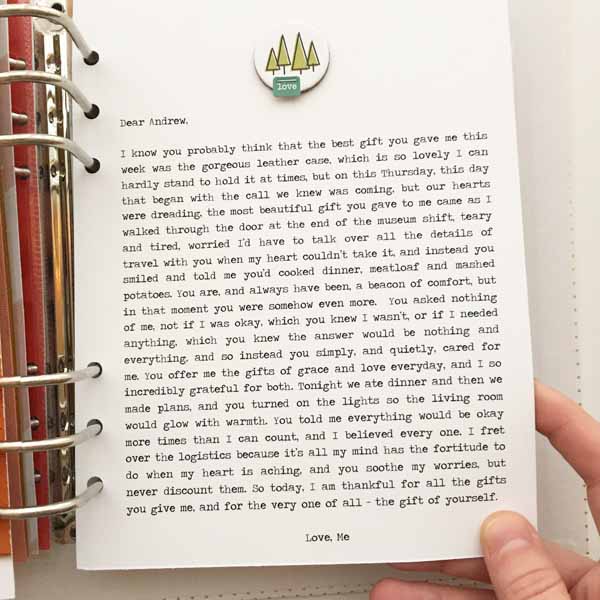 love
Dear Andrew,
I know you probably think that the best gift you gave me this
week was the gorgeous leather case, which is so lovely I can
hardly stand to hold it at times, but on this Thursday, this day
that began with the call we knew was coming, but our hearts
were dreading, the most beautiful gift you gave to me came as I
walked through the door at the end of the museum shift, teary
and tired, worried I'd have to talk over all the details of
travel with you when my heart couldn't take it, and instead you
smiled and told me you'd cooked dinner, meatloaf and mashed
potatoes. You are, and always have been, a beacon of comfort, but
in that moment you were somehow even more. You asked nothing
of me, not if I was okay, which you knew I wasn't, or if I needed
anything, which you knew the answer would be nothing and
everything, and so instead you simply, and quietly, cared for
me. You offer me the gifts of grace and love everyday, and I so
incredibly grateful for both. Tonight we ate dinner and then we
made plans, and you turned on the lights so the living room
would glow with warmth. You told me everything would be okay
more times than I can count, and I believed every one. I fret
over the logistics because it's all my mind has the fortitude to
do when my heart is aching, and you soothe my worries, but
never discount them. So today, I am thankful for all the gifts
you give me, and for the very one of all - the gift of yourself.
Love, Me